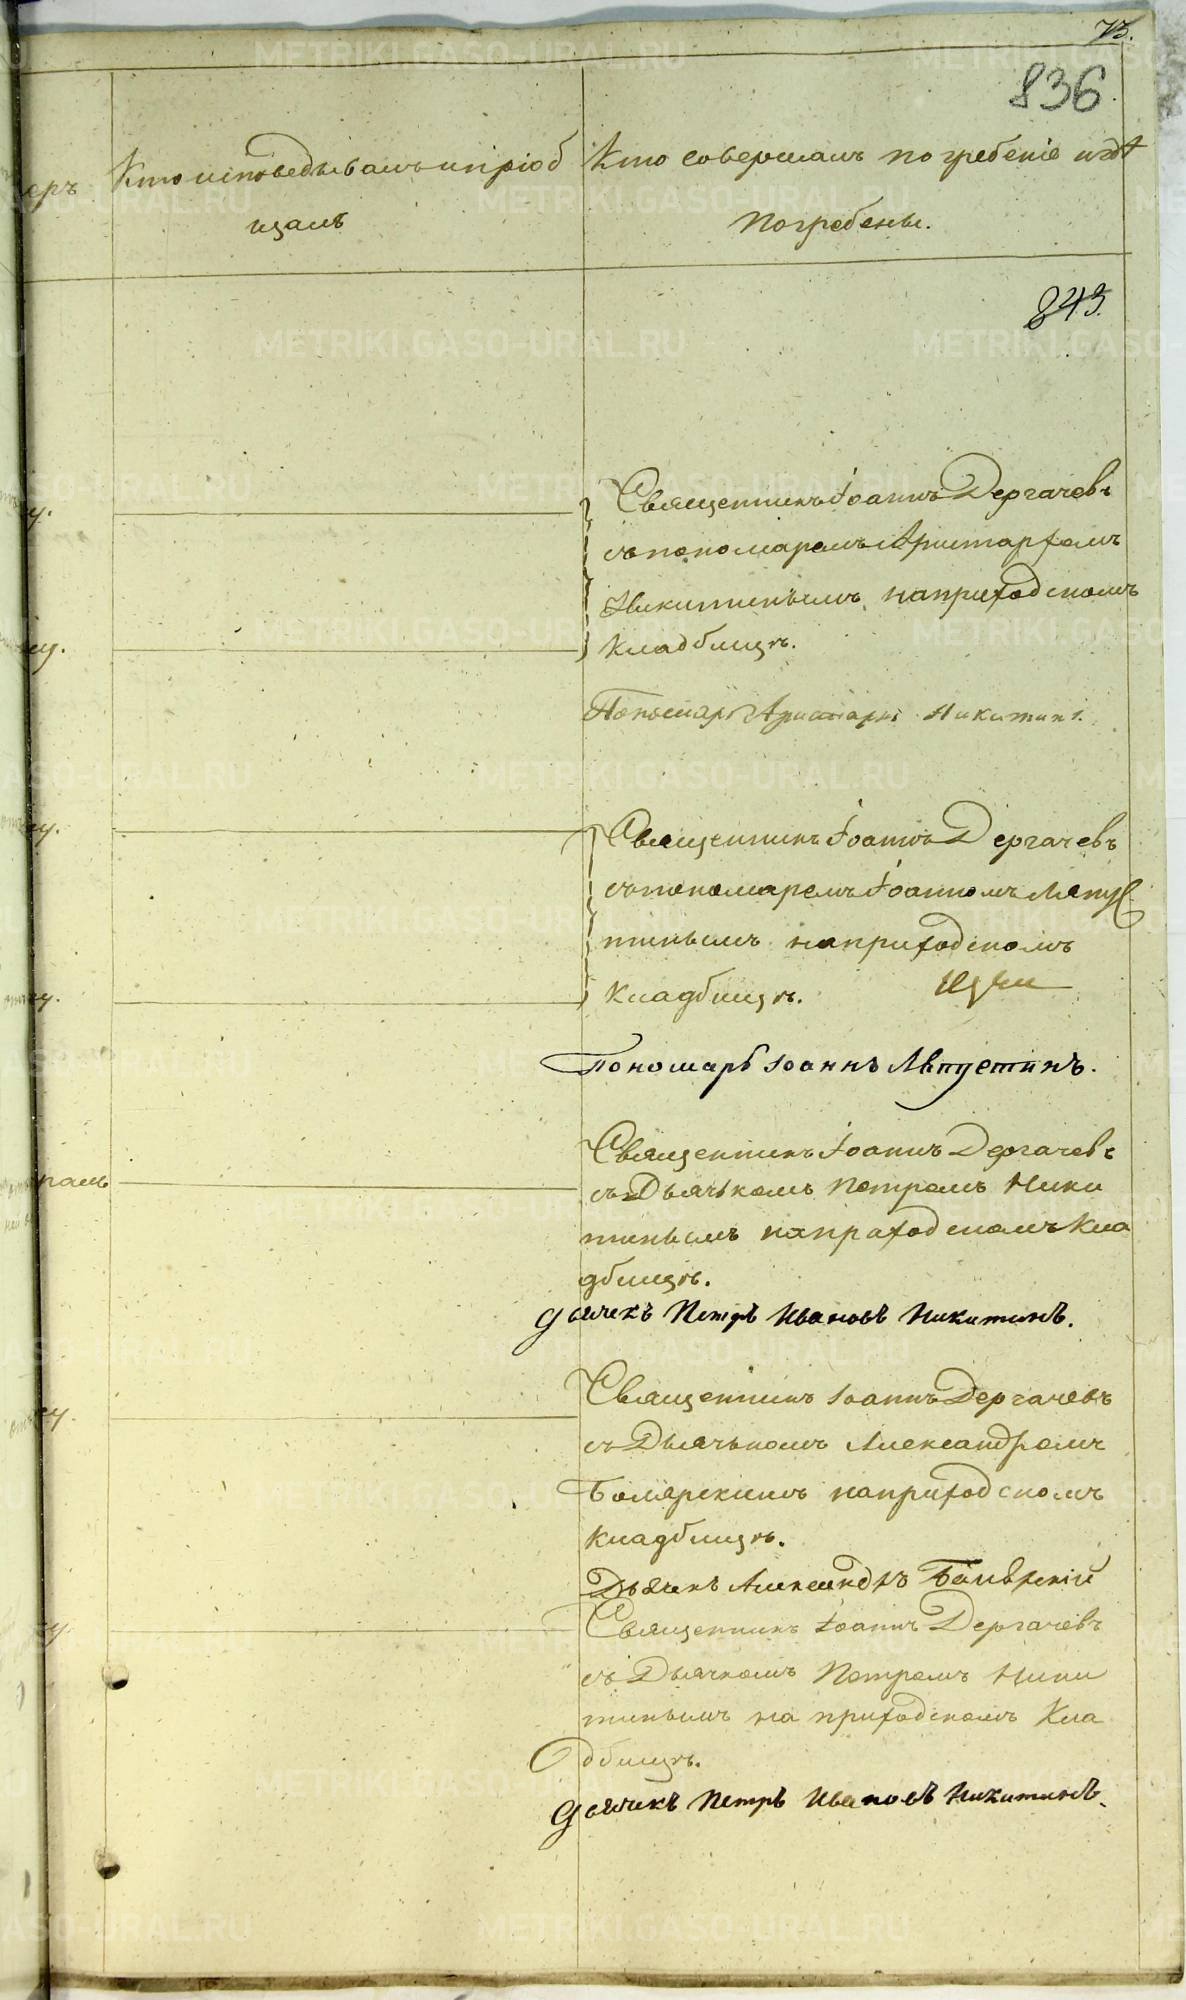 73.
836
еръ
Кто исповедывалъ и пріоб
щалъ
Кто совершалъ погребеніе и гдѣ
погребены.
843.
Священникъ Іоаннъ Дергачевъ
съ пономаремъ Аристархомъ
Никитинымъ на приходскомъ
кладбищѣ.
Пономарь Аристархъ Никитинъ.
Священникъ Іоаннъ Дергачевъ
съ пономаремъ Іоанномъ
тинымъ на приходскомъ
кладбищѣ.
Пономарь Іоаннъ Лепустинъ.
Священникъ Іоаннъ Дергачевъ
ралъ
съ Дьячькомъ Петромъ Ники
тинымъ на приходскомъ кла
дбищѣ.
Дьячекъ Петръ Ивановъ Никитинъ.
Священникъ Іоаннъ Дергачевъ
съ Дьячькомъ Александромъ
Боярскимъ на приходскомъ
кладбищѣ.
Дьячекъ Александръ
Священникъ Іоаннъ Дергачевъ
съ Дьячкомъ Петромъ Ники
тинымъ на приходскомъ Кла
дбищѣ.
Дьячекъ Петръ Ивановъ Никитинъ.
METRIKI.GASO-URAL.RU